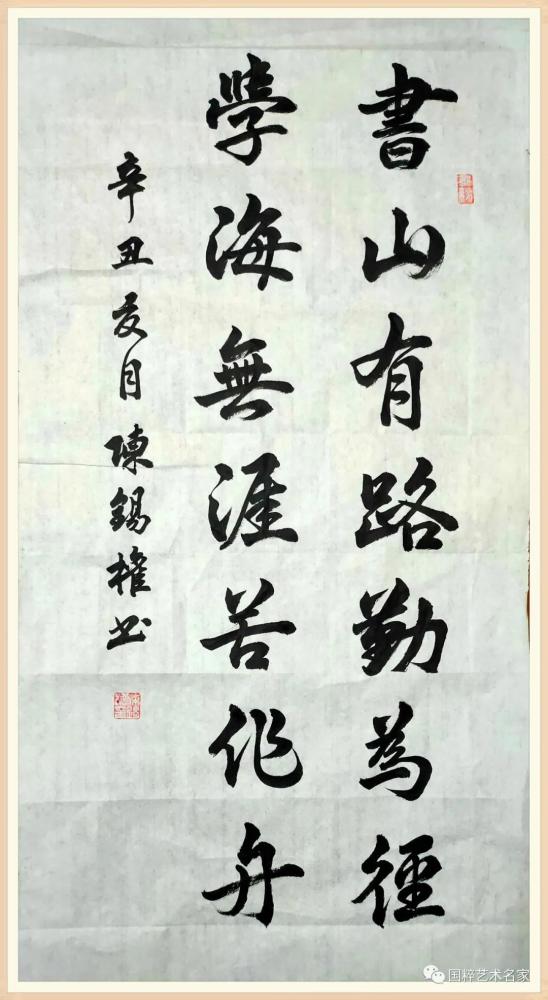 書山有路勤為徑
學海無涯苦作舟
辛丑夏月陳錫權书
国粹艺术名家